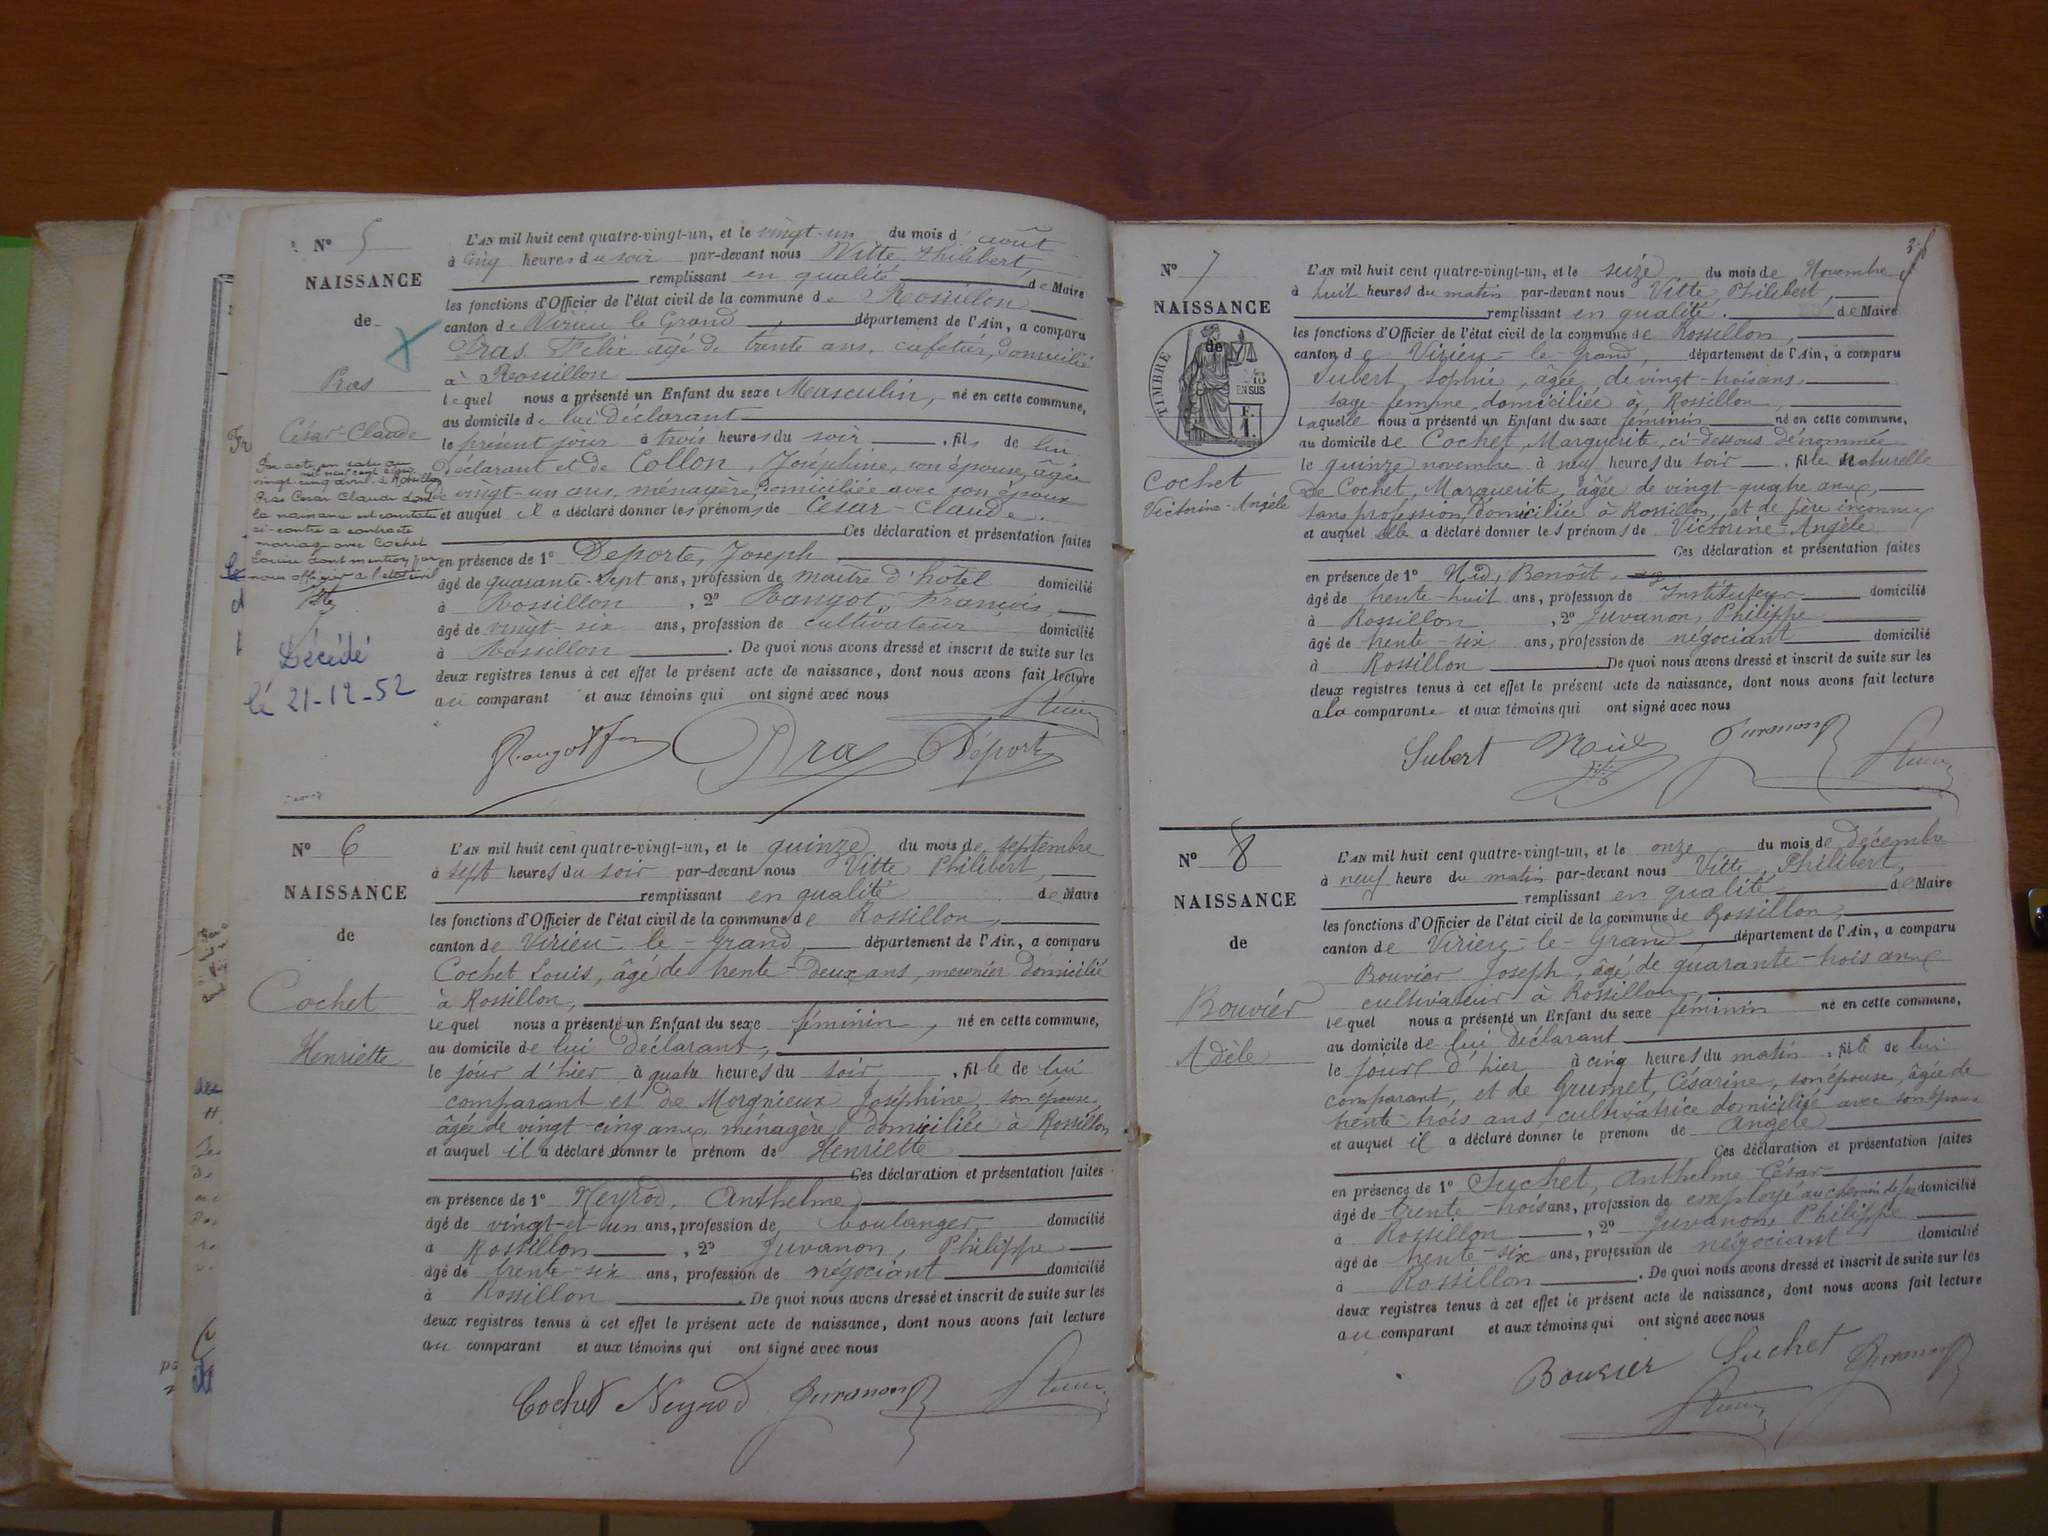 N° 5
NAISSANCE
de
Pras
César-Claude
Par acte en date du
mil neuf cent cinq
vingt-cinq avril à Rossillon
Pras César Claude dont
la naissance est constatée
ci-contre a contracté
mariage avec Cochet
Louise dont mention par
nous officier de l'état civil
Décédé
le 21-12-52
L'AN mil huit cent quatre-vingt-un, et le vingt-un du mois d'août
à cinq heures du soir par-devant nous Vitte Philibert,
remplissant en qualité de Maire
les fonctions d'Officier de l'état civil de la commune de Rossillon
canton de Virieu le Grand, département de l'Ain, a comparu
Pras Félix âgé de trente ans, cafetier, domicilié
à Rossillon
lequel nous a présenté un Enfant du sexe Masculin, né en cette commune,
au domicile de lui déclarant
le présent jour à trois heures du soir, fils de lui
déclarant et de Collon, Joséphine, son épouse, âgée
de vingt-un ans, ménagère, domiciliée avec son époux
et auquel il a déclaré donner les prénoms de César-Claude.
Ces déclaration et présentation faites
en présence de 1° Deporte, Joseph
âgé de quarante-sept ans, profession de maître d'hôtel domicilié
à Rossillon, 2° Rangot, François,
âgé de vingt-six ans, profession de cultivateur domicilié
à Rossillon. De quoi nous avons dressé et inscrit de suite sur les
deux registres tenus à cet effet le présent acte de naissance, dont nous avons fait lecture
au comparant et aux témoins qui ont signé avec nous
Pras Déporte
N° 6
NAISSANCE
de
Cochet
Henriette
L'AN mil huit cent quatre-vingt-un, et le quinze du mois de septembre
à sept heures du soir par-devant nous Vitte Philibert,
remplissant en qualité de Maire
les fonctions d'Officier de l'état civil de la commune de Rossillon,
canton de Virieu-le-Grand, département de l'Ain, a comparu
Cochet Louis, âgé de trente-deux ans, meunier domicilié
à Rossillon,
lequel nous a présenté un Enfant du sexe féminin, né en cette commune,
au domicile de lui déclarant,
le jour d'hier à quatre heures du soir, fille de lui
comparant et de Morgnieux Joséphine, son épouse,
âgée de vingt-cinq ans, ménagère, domiciliée à Rossillon
et auquel il a déclaré donner le prénom de Henriette
Ces déclaration et présentation faites
en présence de 1° Neyrod, Anthelme,
âgé de vingt-et-un ans, profession de boulanger, domicilié
à Rossillon, 2° Juvanon, Philippe
âgé de trente-six ans, profession de négociant domicilié
à Rossillon. De quoi nous avons dressé et inscrit de suite sur les
deux registres tenus à cet effet le présent acte de naissance, dont nous avons fait lecture
au comparant et aux témoins qui ont signé avec nous
Cochet Neyrod Juvanon
N° 7
NAISSANCE
de
TIMBRE
EN SUS
Cochet
Victorine-Angèle
L'AN mil huit cent quatre-vingt-un, et le seize du mois de Novembre
à huit heures du matin par-devant nous Vitte, Philibert,
remplissant en qualité de Maire
les fonctions d'Officier de l'état civil de la commune de Rossillon,
canton de Virieu-le-Grand département de l'Ain, a comparu
Subert, Sophie, âgée de vingt-trois ans,
sage-femme, domiciliée à Rossillon,
laquelle nous a présenté un Enfant du sexe féminin né en cette commune,
au domicile de Cochet, Marguerite, ci-dessous dénommée
le quinze novembre à neuf heures du soir, fille naturelle
de Cochet, Marguerite, âgée de vingt-quatre ans,
sans profession, domiciliée à Rossillon, et de père inconnu
et auquel elle a déclaré donner les prénoms de Victorine-Angèle
Ces déclaration et présentation faites
en présence de 1° Nid, Benoît
âgé de trente-huit ans, profession de Instituteur domicilié
à Rossillon, 2° Juvanon, Philippe
âgé de trente-six ans, profession de négociant domicilié
à Rossillon De quoi nous avons dressé et inscrit de suite sur les
deux registres tenus à cet effet le présent acte de naissance, dont nous avons fait lecture
a la comparante et aux témoins qui ont signé avec nous
Subert Nid Juvanon
N° 8
NAISSANCE
de
Bouvier
Adèle
L'AN mil huit cent quatre-vingt-un, et le onze du mois de décembre
à neuf heure du matin par-devant nous Vitte, Philibert,
remplissant en qualité de Maire
les fonctions d'Officier de l'état civil de la commune de Rossillon,
canton de Virieu-le-Grand, département de l'Ain, a comparu
Bouvier Joseph, âgé de quarante-trois ans
cultivateur à Rossillon,
lequel nous a présenté un Enfant du sexe féminin né en cette commune,
au domicile de lui déclarant
le jour d'hier à cinq heures du matin, fille de lui
comparant, et de Grumet, Césarine, son épouse, âgée de
trente-trois ans, cultivatrice domiciliée avec son époux
et auquel il a déclaré donner le prénom de Angèle
Ces déclaration et présentation faites
en présence de 1° Suchet, Anthelme-César
âgé de trente-trois ans, profession de employé au chemin de fer domicilié
à Rossillon, 2° Juvanon, Philippe
âgé de trente-six ans, profession de négociant domicilié
à Rossillon. De quoi nous avons dressé et inscrit de suite sur les
deux registres tenus à cet effet le présent acte de naissance, dont nous avons fait lecture
au comparant et aux témoins qui ont signé avec nous
Bouvier Suchet Juvanon